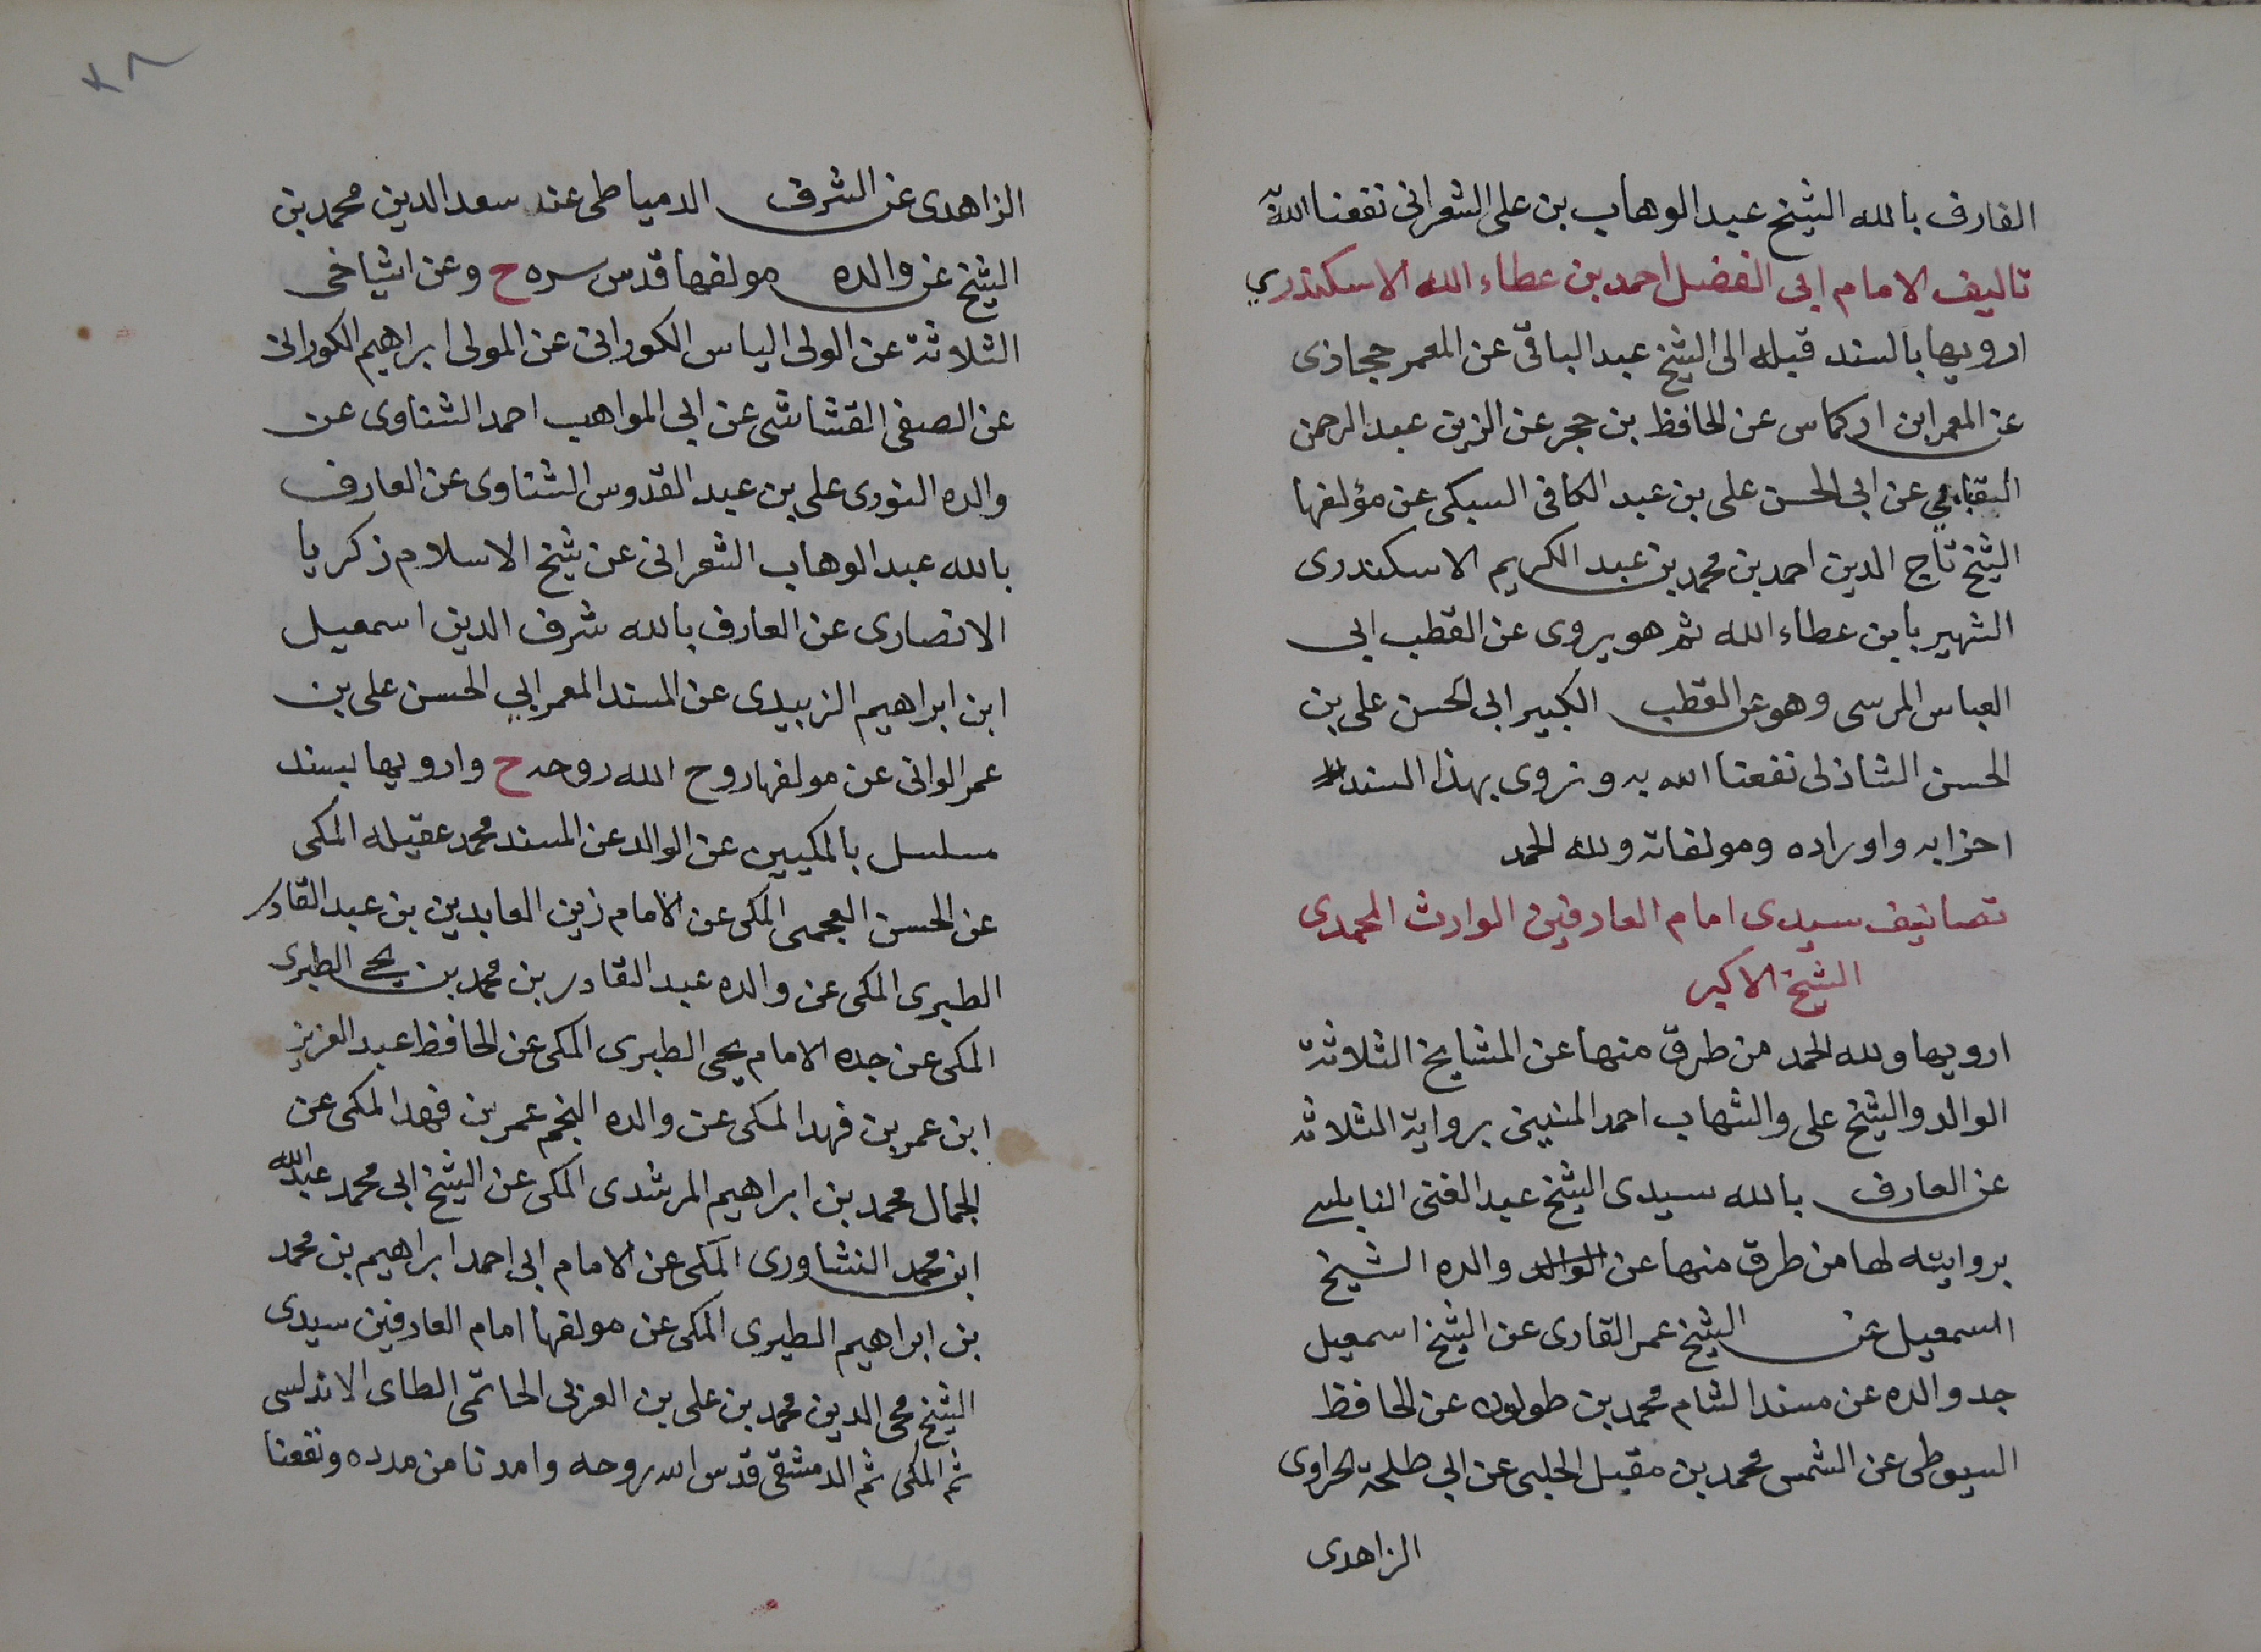 العارف بالله الشيخ عبد الوهاب بن على الشعرانى نفعنا الله به
تاليف الامام ابى الفضل احمد بن عطاء الله الاسكندري
ارويها بالسند قبله الى الشيخ عبد الباقى عن المعمر حجازى
عن المعمر ابن اركماس عن الحافظ بن حجر عن الزين عبد الرحمن
عن ابى الحسن على بن عبد الكافى السبكى عن مؤلفها
الشيخ تاج الدين احمد بن محمد بن عبد الكريم الاسكندرى
الشهير بابن عطاء الله ثم هو يروى عن القطب ابى
العباس المرسى وهو عن القطب الكبير ابى الحسن على بن
الحسن الشاذلى نفعنا الله به ونروى بهذا السند
احزابه واوراده ومولفاته ولله الحمد
تصانيف سيدى امام العارفين الوارث المحمدى
الشيخ الاكبر
ارويها ولله الحمد من طرق منها عن المشايخ الثلاثة
الوالد والشيخ على والشهاب احمد المنينى برواية الثلاثة
عن العارف بالله سيدى الشيخ عبد الغنى النابلسى
بروايته لها من طرق منها عن الوالد والده الشيخ
اسمعيل عن الشيخ عمر القارى عن الشيخ اسمعيل
جد والده عن مسند الشام محمد بن طولون عن الحافظ
السيوطى عن الشمس محمد بن مقبل الحلبى عن ابى طلحة الحراوى
الزاهدى
٣٨
الزاهدى عن الشرف الدمياطى عنه سعد الدين محمد بن
الشيخ عن والده مولفها قدس سره ح وعن اشياخى
الثلاثة عن الولى الياس الكورانى عن المولى ابراهيم الكورانى
عن الصفى القشاشى عن ابى المواهب احمد الشناوى عن
والده النورى على بن عبد القدوس الشناوى عن العارف
بالله عبد الوهاب الشعرانى عن شيخ الاسلام زكريا
الانصارى عن العارف بالله شرف الدين اسمعيل
ابن ابراهيم الزبيدى عن المسند المعمر ابي الحسن على بن
عمر الوانى عن مولفها روح الله روحه ح وارويها بسند
مسلسل بالمكيين عن الوالد عن المسند محمد عقيله المكى
عن الحسن العجمى المكى عن الامام زين العابدين بن عبد القادر
الطبرى المكى عن والده عبد القادر بن محمد بن يحى الطبرى
المكى عن جده الامام يحى الطبرى المكى عن الحافظ عبد العزيز
ابن عمر بن فهد المكى عن والده النجم عمر بن فهد المكى عن
الجمال محمد بن ابراهيم المرشدى المكى عن الشيخ ابى محمد عبد الله
ابن محمد النشاورى المكى عن الامام ابى احمد ابراهيم بن محمد
بن ابراهيم الطبرى المكى عن مولفها امام العارفين سيدى
الشيخ محى الدين محمد بن على بن العربى الحاتمى الطاى الاندلسى
ثم المكى ثم الدمشقى قدس الله روحه وامدنا من مدده ونفعنا